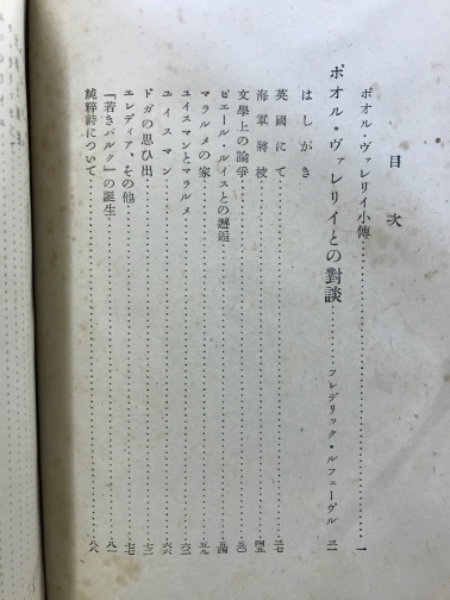 目次
ポオル・ヴァレリイ小傳 一
ポオル・ヴァレリイとの對談 フレデリック・ルフェーヴル 三一
はしがき
英國にて 三七
海軍將校 四五
文學上の論爭 五〇
ピエール・ルイスとの邂逅 五四
マラルメの家 五九
ユイスマンとマラルメ 六三
ユイスマン 六六
ドガの思ひ出 七三
エレディア、その他 七七
『若きパルク』の誕生 八一
純粹詩について 八六